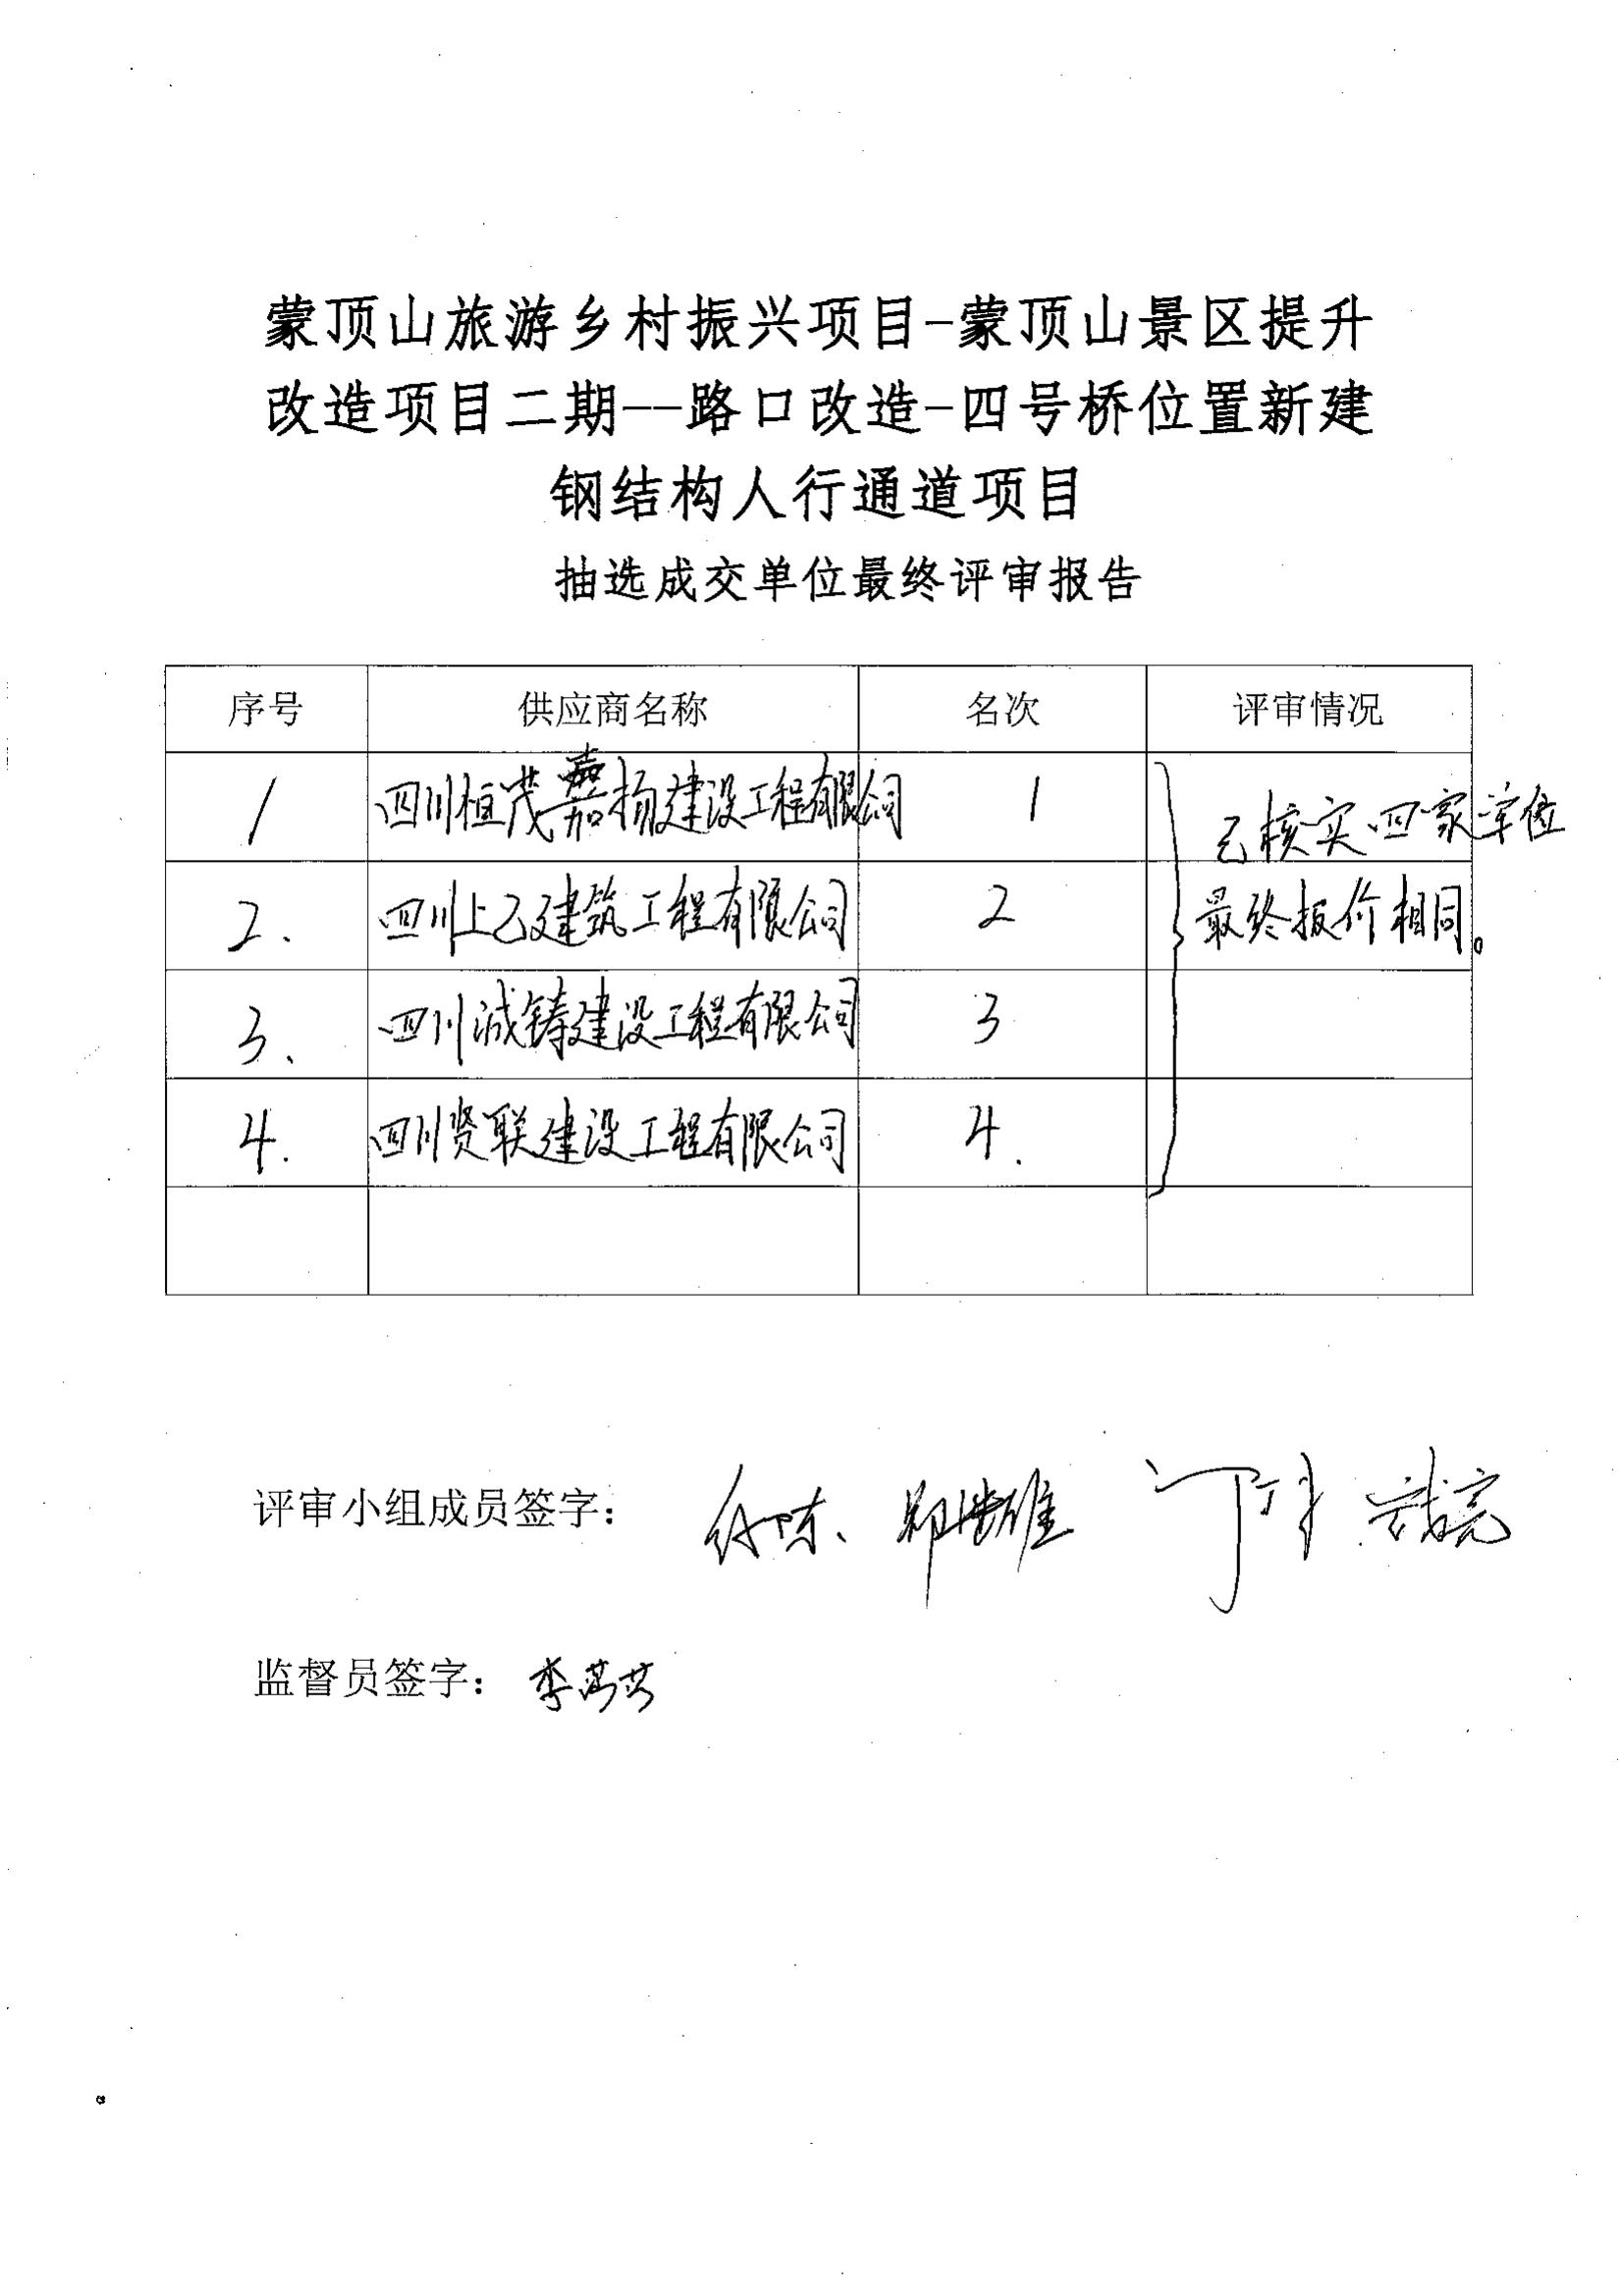 蒙顶山旅游乡村振兴项目-蒙顶山景区提升
改造项目二期--路口改造-四号桥位置新建
钢结构人行通道项目
抽选成交单位最终评审报告
序号 供应商名称 名次 评审情况
1 四川恒茂嘉扬建设工程有限公司 1 已核实四家单位
2. 四川上乙建筑工程有限公司 2 最终报价相同。
3. 四川诚铸建设工程有限公司 3
4. 四川贤联建设工程有限公司 4.
评审小组成员签字：
监督员签字：李